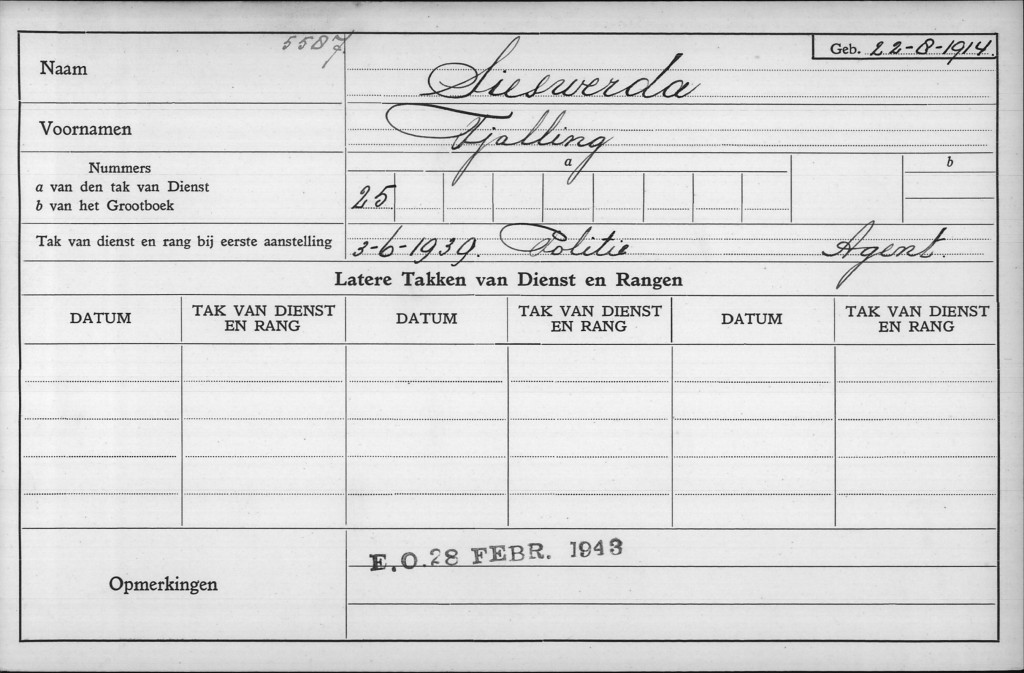 5587
Geb. 22-8-1914.
Naam Sieswerda
Voornamen Tjalling
Nummers
a van den tak van Dienst
b van het Grootboek
a
b
25
Tak van dienst en rang bij eerste aanstelling 3-6-1939. Politie Agent.
Latere Takken van Dienst en Rangen
DATUM TAK VAN DIENST EN RANG DATUM TAK VAN DIENST EN RANG DATUM TAK VAN DIENST EN RANG
Opmerkingen
E.O. 28 FEBR. 1943